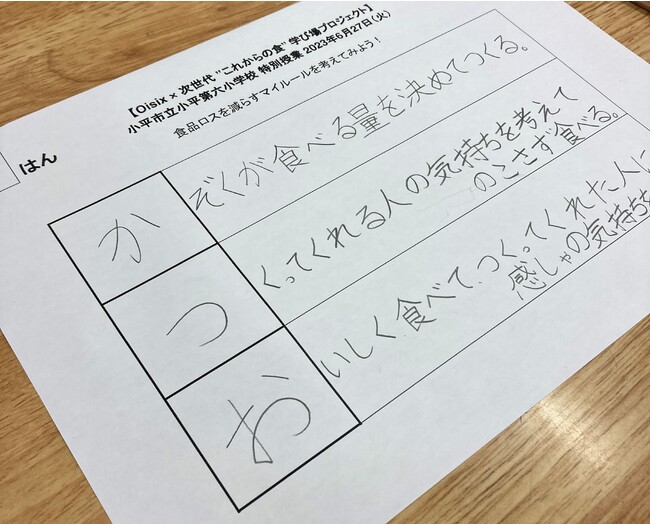 【Oisix × 次世代 "これからの食" 学び場プロジェクト】
小平市立小平第六小学校 特別授業 2023年6月27日(火)
食品ロスを減らすマイルールを考えてみよう！
はん
か
ぞくが食べる量を決めてつくる。
つ
くってくれる人の気持ちを考えて
のこさず食べる。
お
いしく食べて、つくってくれた人に
感しゃの気持ちを